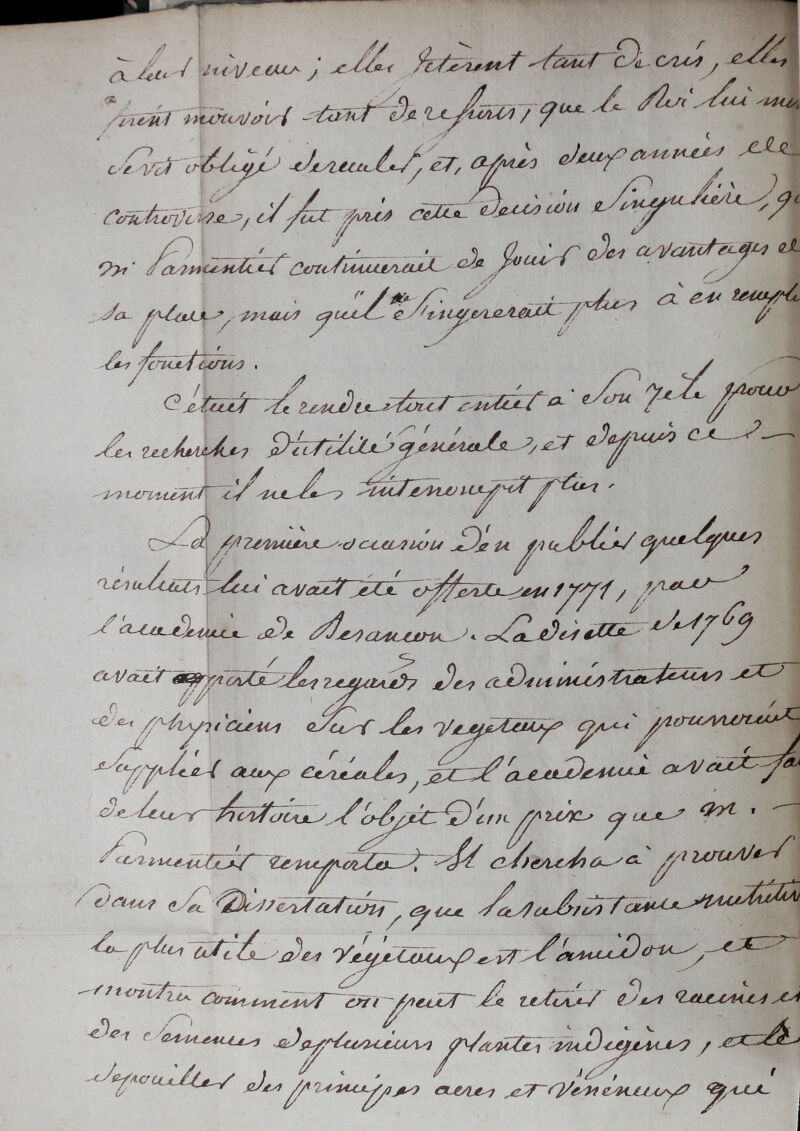 à leur niveau ; elles jetèrent tant de cris, elles
firent mouvoir tant de ressorts, que le Roi lui mê
se vit obligé de reculer, et, après deux années de
controverse, il fut pris cette décision singulière, qu
M Parmentier continuerait de jouir des avantages de
sa place, mais qu'il ne s'ingererait plus à en rempli
les fonctions.
C'était le rendre tout entier à son zèle pour
les recherches d'utilité générale, et depuis ce
moment il ne les interrompit plus.
La première occasion d'en publier quelques
résultats lui avait été offerte en 1771, par
l'académie de Besancon. La disette de 1769
avait porté les regards des administrateurs et
des physiciens sur les vegetaux qui pourroient
suppléer aux céréales, et l'academie avait fa
de leur histoire l'objet d'un prix que M.
Parmentier remporta. Il chercha à prouver
dans sa Dissertation, que la subsistance nutritiv
la plus utile des végétaux est l'amidon, et
montra comment on peut le retirer des racines et
des semences de plusieurs plantes indigènes, et le
depouiller des principes acres et vénéneux qui